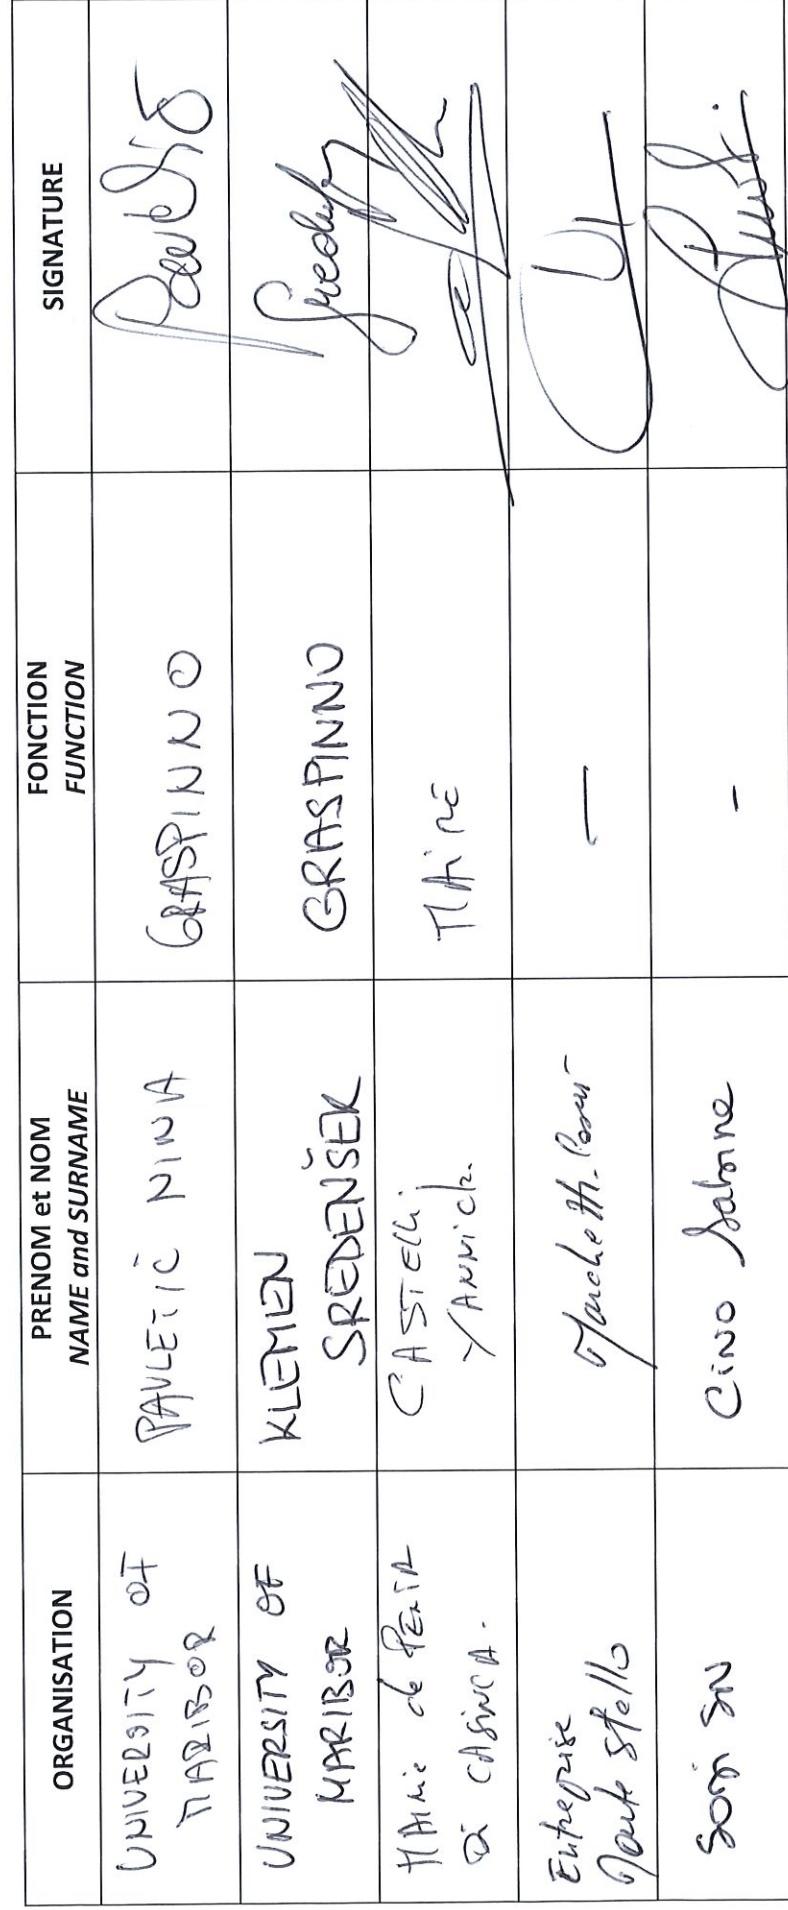 ORGANISATION
PRENOM et NOM
NAME and SURNAME
FONCTION
FUNCTION
SIGNATURE
UNIVERSITY OF
MARIBOR
PAVLETIČ NINA
GRASPINNO
UNIVERSITY OF
MARIBOR
KLEMEN
SREDENŠEK
GRASPINNO
MAirie de PENTA
DI CASINCA.
CASTELLi
YANNick.
MAiRE
—
Entreprise
Monte Stello
CINO Sabrine
-